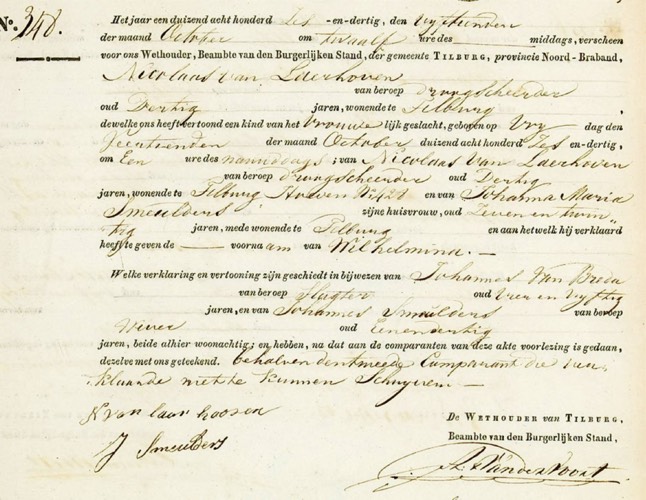 No. 348.
Het jaar een duizend acht honderd Zes -en-dertig, den vyftienden
der maand October om twaalf ure des middags, verscheen
voor ons Wethouder, Beambte van den Burgerlijken Stand, der gemeente TILBURG, provincie Noord-Braband,
Nicolaas van Laerhoven
van beroep droogscheerder
oud Dertig jaren, wonende te Tilburg,
dewelke ons heeft vertoond een kind van het Vrouwelijk geslacht, geboren op Vrydag den
Veertienden der maand October duizend acht honderd Zes en-dertig,
om Een ure des namiddags; van Nicolaas van Laerhoven
van beroep droogscheerder oud Dertig
jaren, wonende te Tilburg Hoeven en van Johanna Maria
Smeulders zijne huisvrouw, oud Zeven en twin-
tig jaren, mede wonende te Tilburg en aan het welk hij verklaard
heeft te geven de voornaam van Wilhelmina.
Welke verklaring en vertooning zijn geschied in bijwezen van Johannes van Breda
van beroep Slagter oud Vier en Vyftig
jaren, en van Johannes Smulders van beroep
Wever oud Eenendertig
jaren, beide alhier woonachtig; en hebben, na dat aan de comparanten van deze akte voorlezing is gedaan,
dezelve met ons geteekend. behalven den tweede Comparant die ver-
klaarde niet te kunnen Schryven
N van laar hooven
J Smeulders
De WETHOUDER van TILBURG,
Beambte van den Burgerlijken Stand,